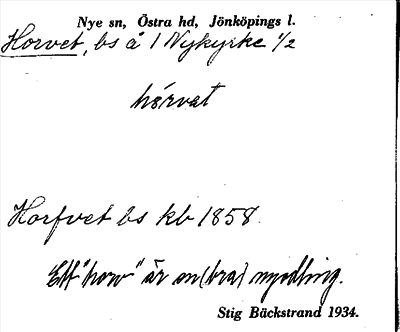 Nye sn, Östra hd, Jönköpings l.
Horvet, bs å 1 Nykyrke 1/2
hórvat
Horfvet bs kb 1858.
Ett "horv" är en (bra) myrodling.
Stig Bäckstrand 1934.